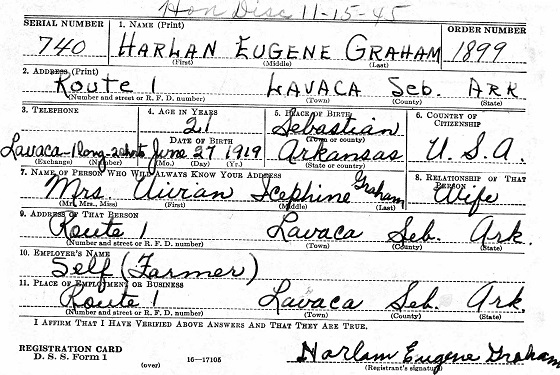 Hon Disc 11-15-45
SERIAL NUMBER 1. NAME (Print) ORDER NUMBER
740 HARLAN EUGENE GRAHAM 1899
(First) (Middle) (Last)
2. ADDRESS (Print)
Route 1 LAVACA Seb. ARK
(Number and street or R. F. D. number) (Town) (County) (State)
3. TELEPHONE 4. AGE IN YEARS 5. PLACE OF BIRTH 6. COUNTRY OF CITIZENSHIP
21 Sebastian
DATE OF BIRTH (Town or county)
Lavaca-1 long-2 shorts June 27 1919 Arkansas U. S. A.
(Exchange) (Number) (Mo.) (Day) (Yr.) (State or country)
7. NAME OF PERSON WHO WILL ALWAYS KNOW YOUR ADDRESS 8. RELATIONSHIP OF THAT PERSON
Mrs. Vivian Graham Wife
(Mr., Mrs., Miss) (First) (Middle) (Last)
9. ADDRESS OF THAT PERSON
Route 1 Lavaca Seb. Ark.
(Number and street or R. F. D. number) (Town) (County) (State)
10. EMPLOYER'S NAME
Self (Farmer)
11. PLACE OF EMPLOYMENT OR BUSINESS
Route 1 Lavaca Seb. Ark.
(Number and street or R. F. D. number) (Town) (County) (State)
I AFFIRM THAT I HAVE VERIFIED ABOVE ANSWERS AND THAT THEY ARE TRUE.
REGISTRATION CARD
D. S. S. Form 1 (over) 16—17105 Harlan Eugene Graham
(Registrant's signature)